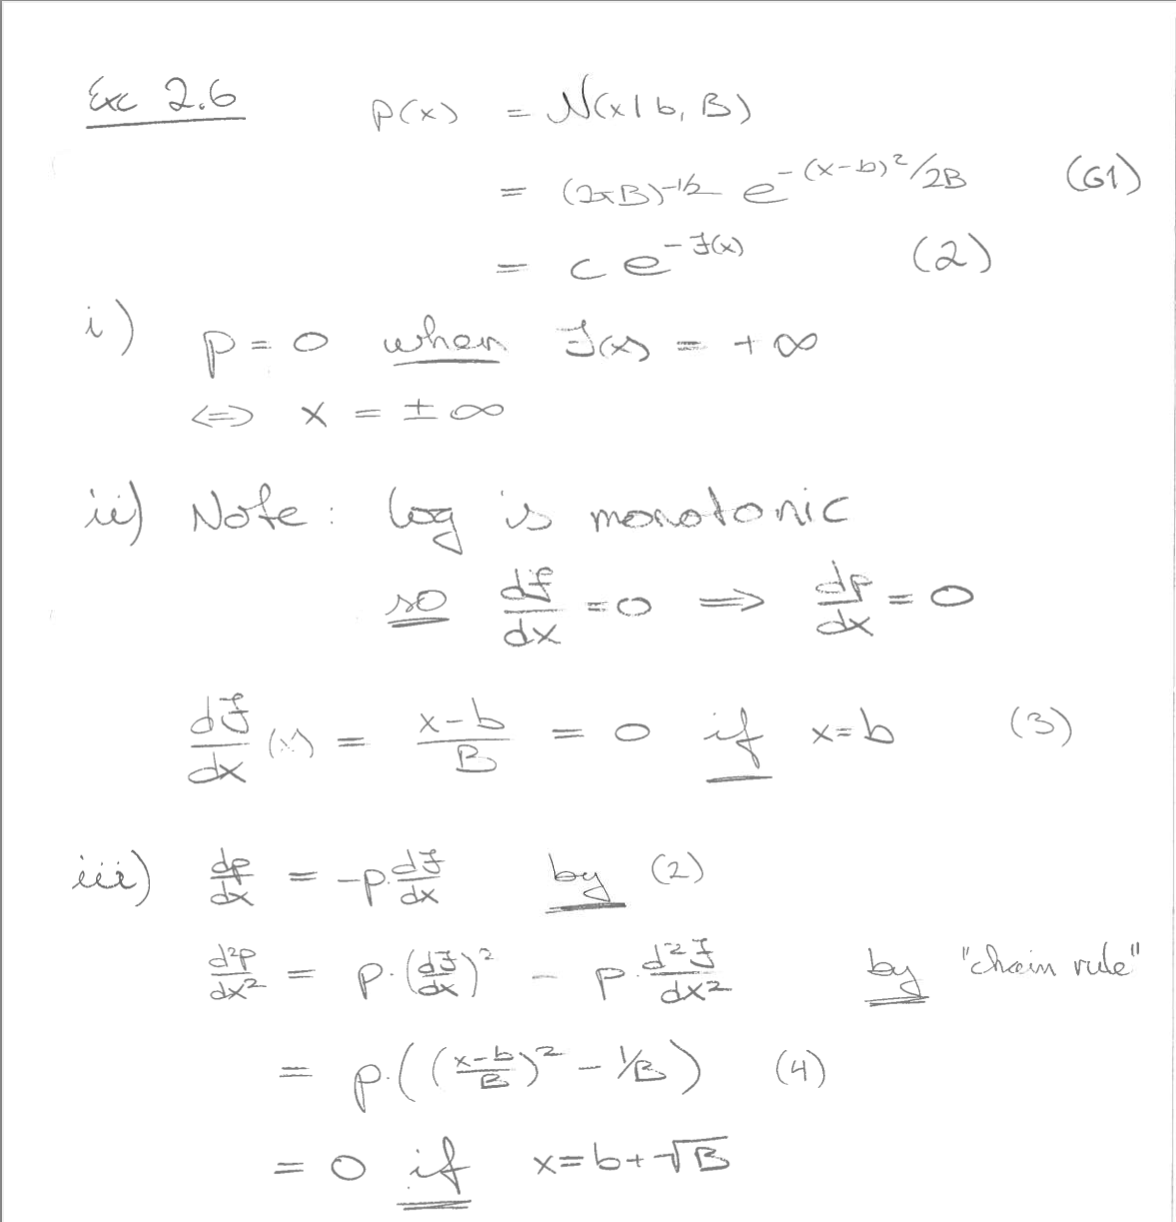 Exc 2.6 p(x) = N(x|b, B)
= (2πB)^-1/2 e^-(x-b)²/2B (G1)
= c e^-F(x) (2)
i) p = 0 when F(x) = +∞
⇔ x = ±∞
ii) Note: log is monotonic
so df/dx = 0 ⇒ dp/dx = 0
dF/dx (x) = x-b/B = 0 if x=b (3)
iii) dp/dx = -p·dF/dx by (2)
d²p/dx² = p·(dF/dx)² - p·d²F/dx² by "chain rule"
= p·((x-b/B)² - 1/B) (4)
= 0 if x=b+√B